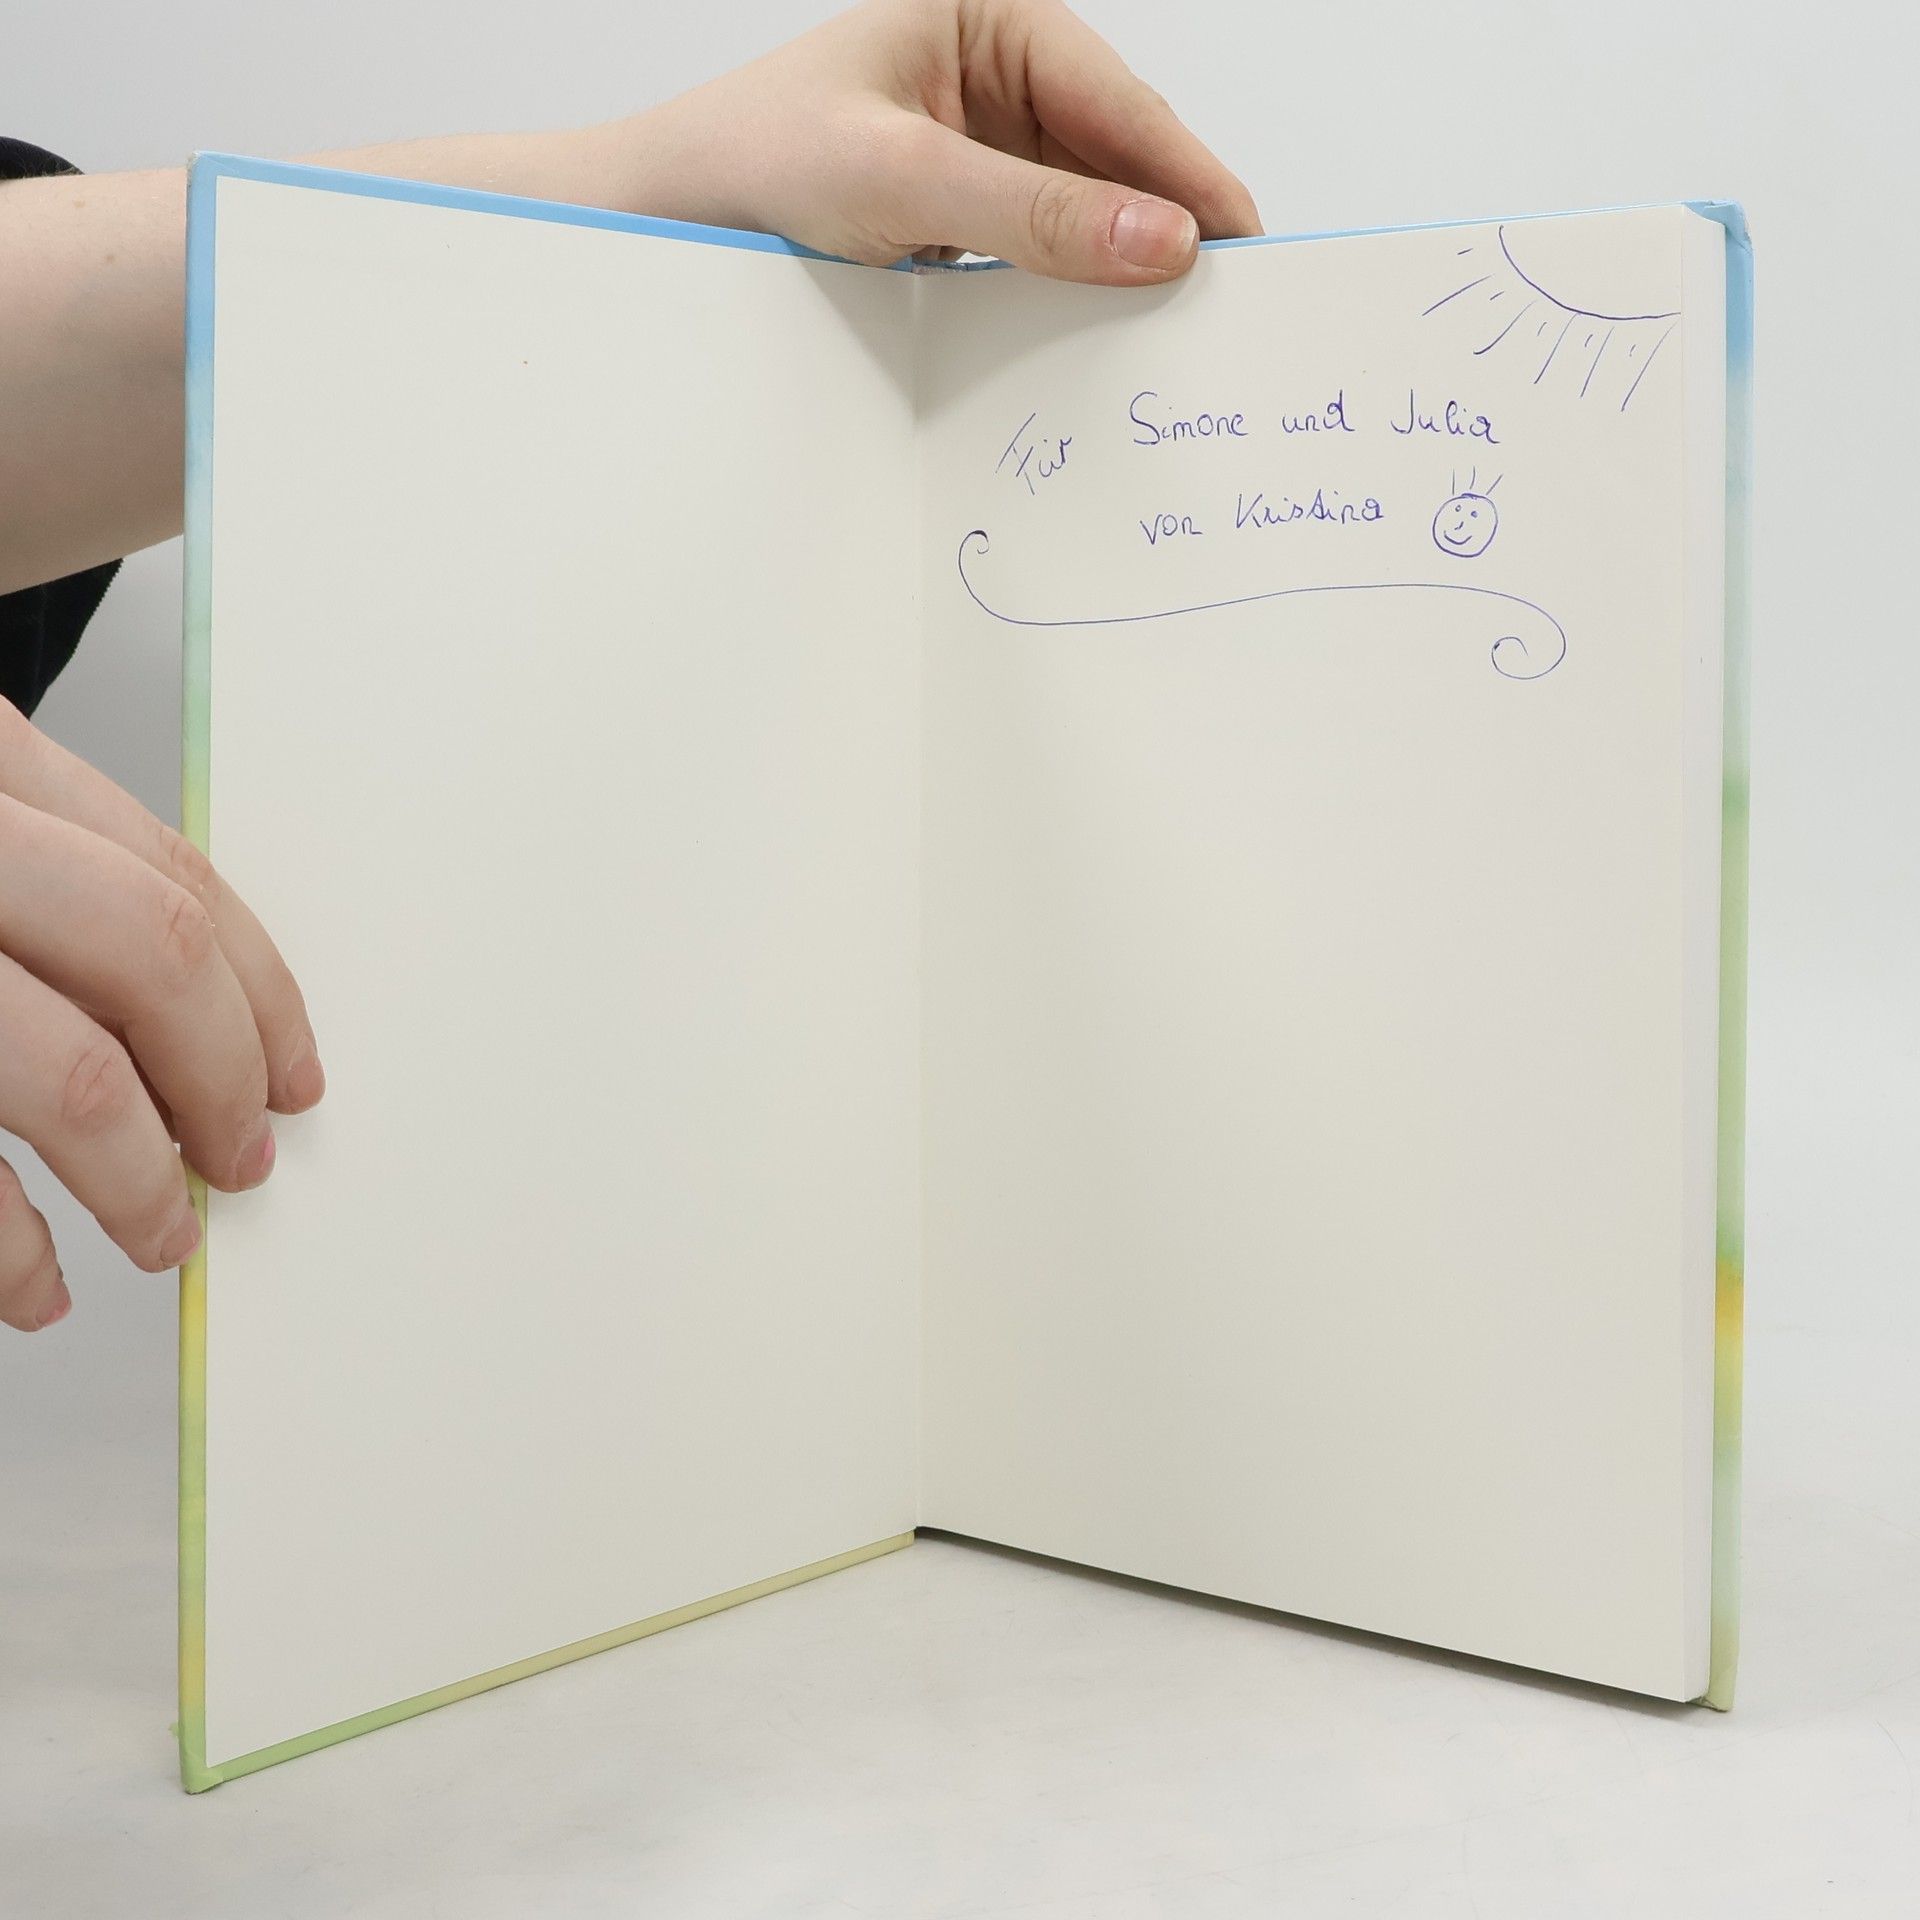 Für Simone und Julia
von Kristina